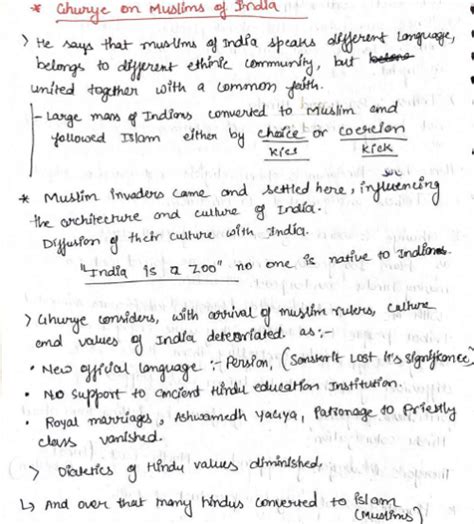 * Ghurye on Muslims of India
> He says that muslims of India speaks different language,
belongs to different ethinic community, but
united together with a common faith.
- Large mass of Indians converted to Muslim and
followed Islam either by choice or cohersion
kick
* Muslim invaders came and settled here, influencing
the architecture and culture of India.
Diffusion of their culture with India.
"India is a zoo" no one is native to Indians.
> Ghurye considers, with arrival of muslim rulers, culture
and values of India deteriorated. as :-
• New official language :- Persian, (Sanskrit Lost its signifkance)
• No support to ancient Hindu education Institution.
• Royal marriages, Ashwamedh yagya, Patronage to Priestly
class vanished.
> Dialetics of Hindu values diminished,
↳ And over that many hindus converted to islam
(Muslims)